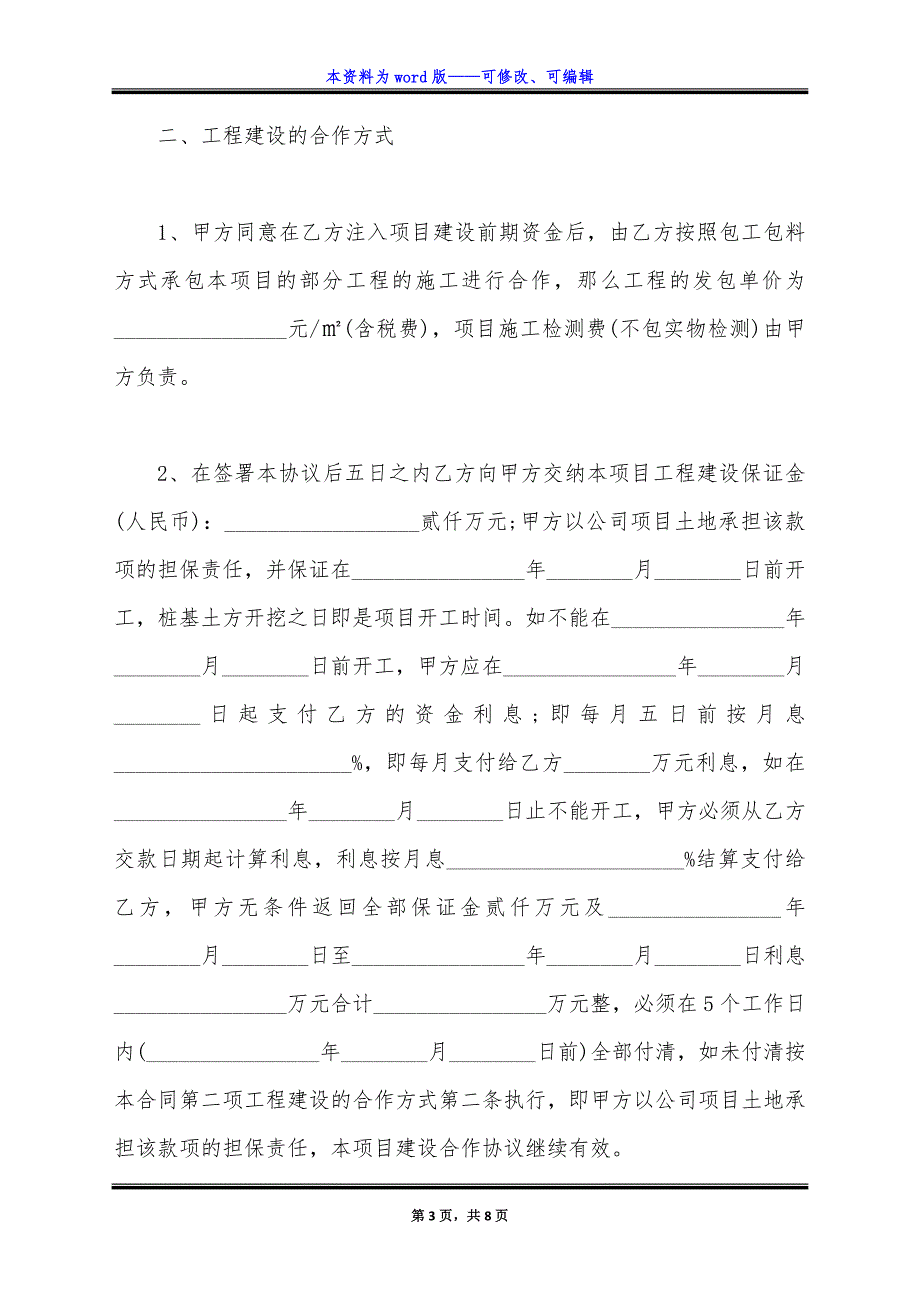 本资料为 word 版——可修改、可编辑
二、工程建设的合作方式
1、甲方同意在乙方注入项目建设前期资金后，由乙方按照包工包料
方式承包本项目的部分工程的施工进行合作，那么工程的发包单价为
________________元/㎡(含税费)，项目施工检测费(不包实物检测)由甲
方负责。
2、在签署本协议后五日之内乙方向甲方交纳本项目工程建设保证金
(人民币)：__________________贰仟万元;甲方以公司项目土地承担该款
项的担保责任，并保证在________________年________月________日前开
工，桩基土方开挖之日即是项目开工时间。如不能在________________年
________月________日前开工，甲方应在________________年________月
________日起支付乙方的资金利息;即每月五日前按月息
______________________%，即每月支付给乙方________万元利息，如在
________________年________月________日止不能开工，甲方必须从乙方
交款日期起计算利息，利息按月息______________________%结算支付给
乙方，甲方无条件返回全部保证金贰仟万元及________________年
________月________日至________________年________月________日利息
________________万元合计________________万元整，必须在 5 个工作日
内(________________年________月________日前)全部付清，如未付清按
本合同第二项工程建设的合作方式第二条执行，即甲方以公司项目土地承
担该款项的担保责任，本项目建设合作协议继续有效。
第 3 页，共 8 页